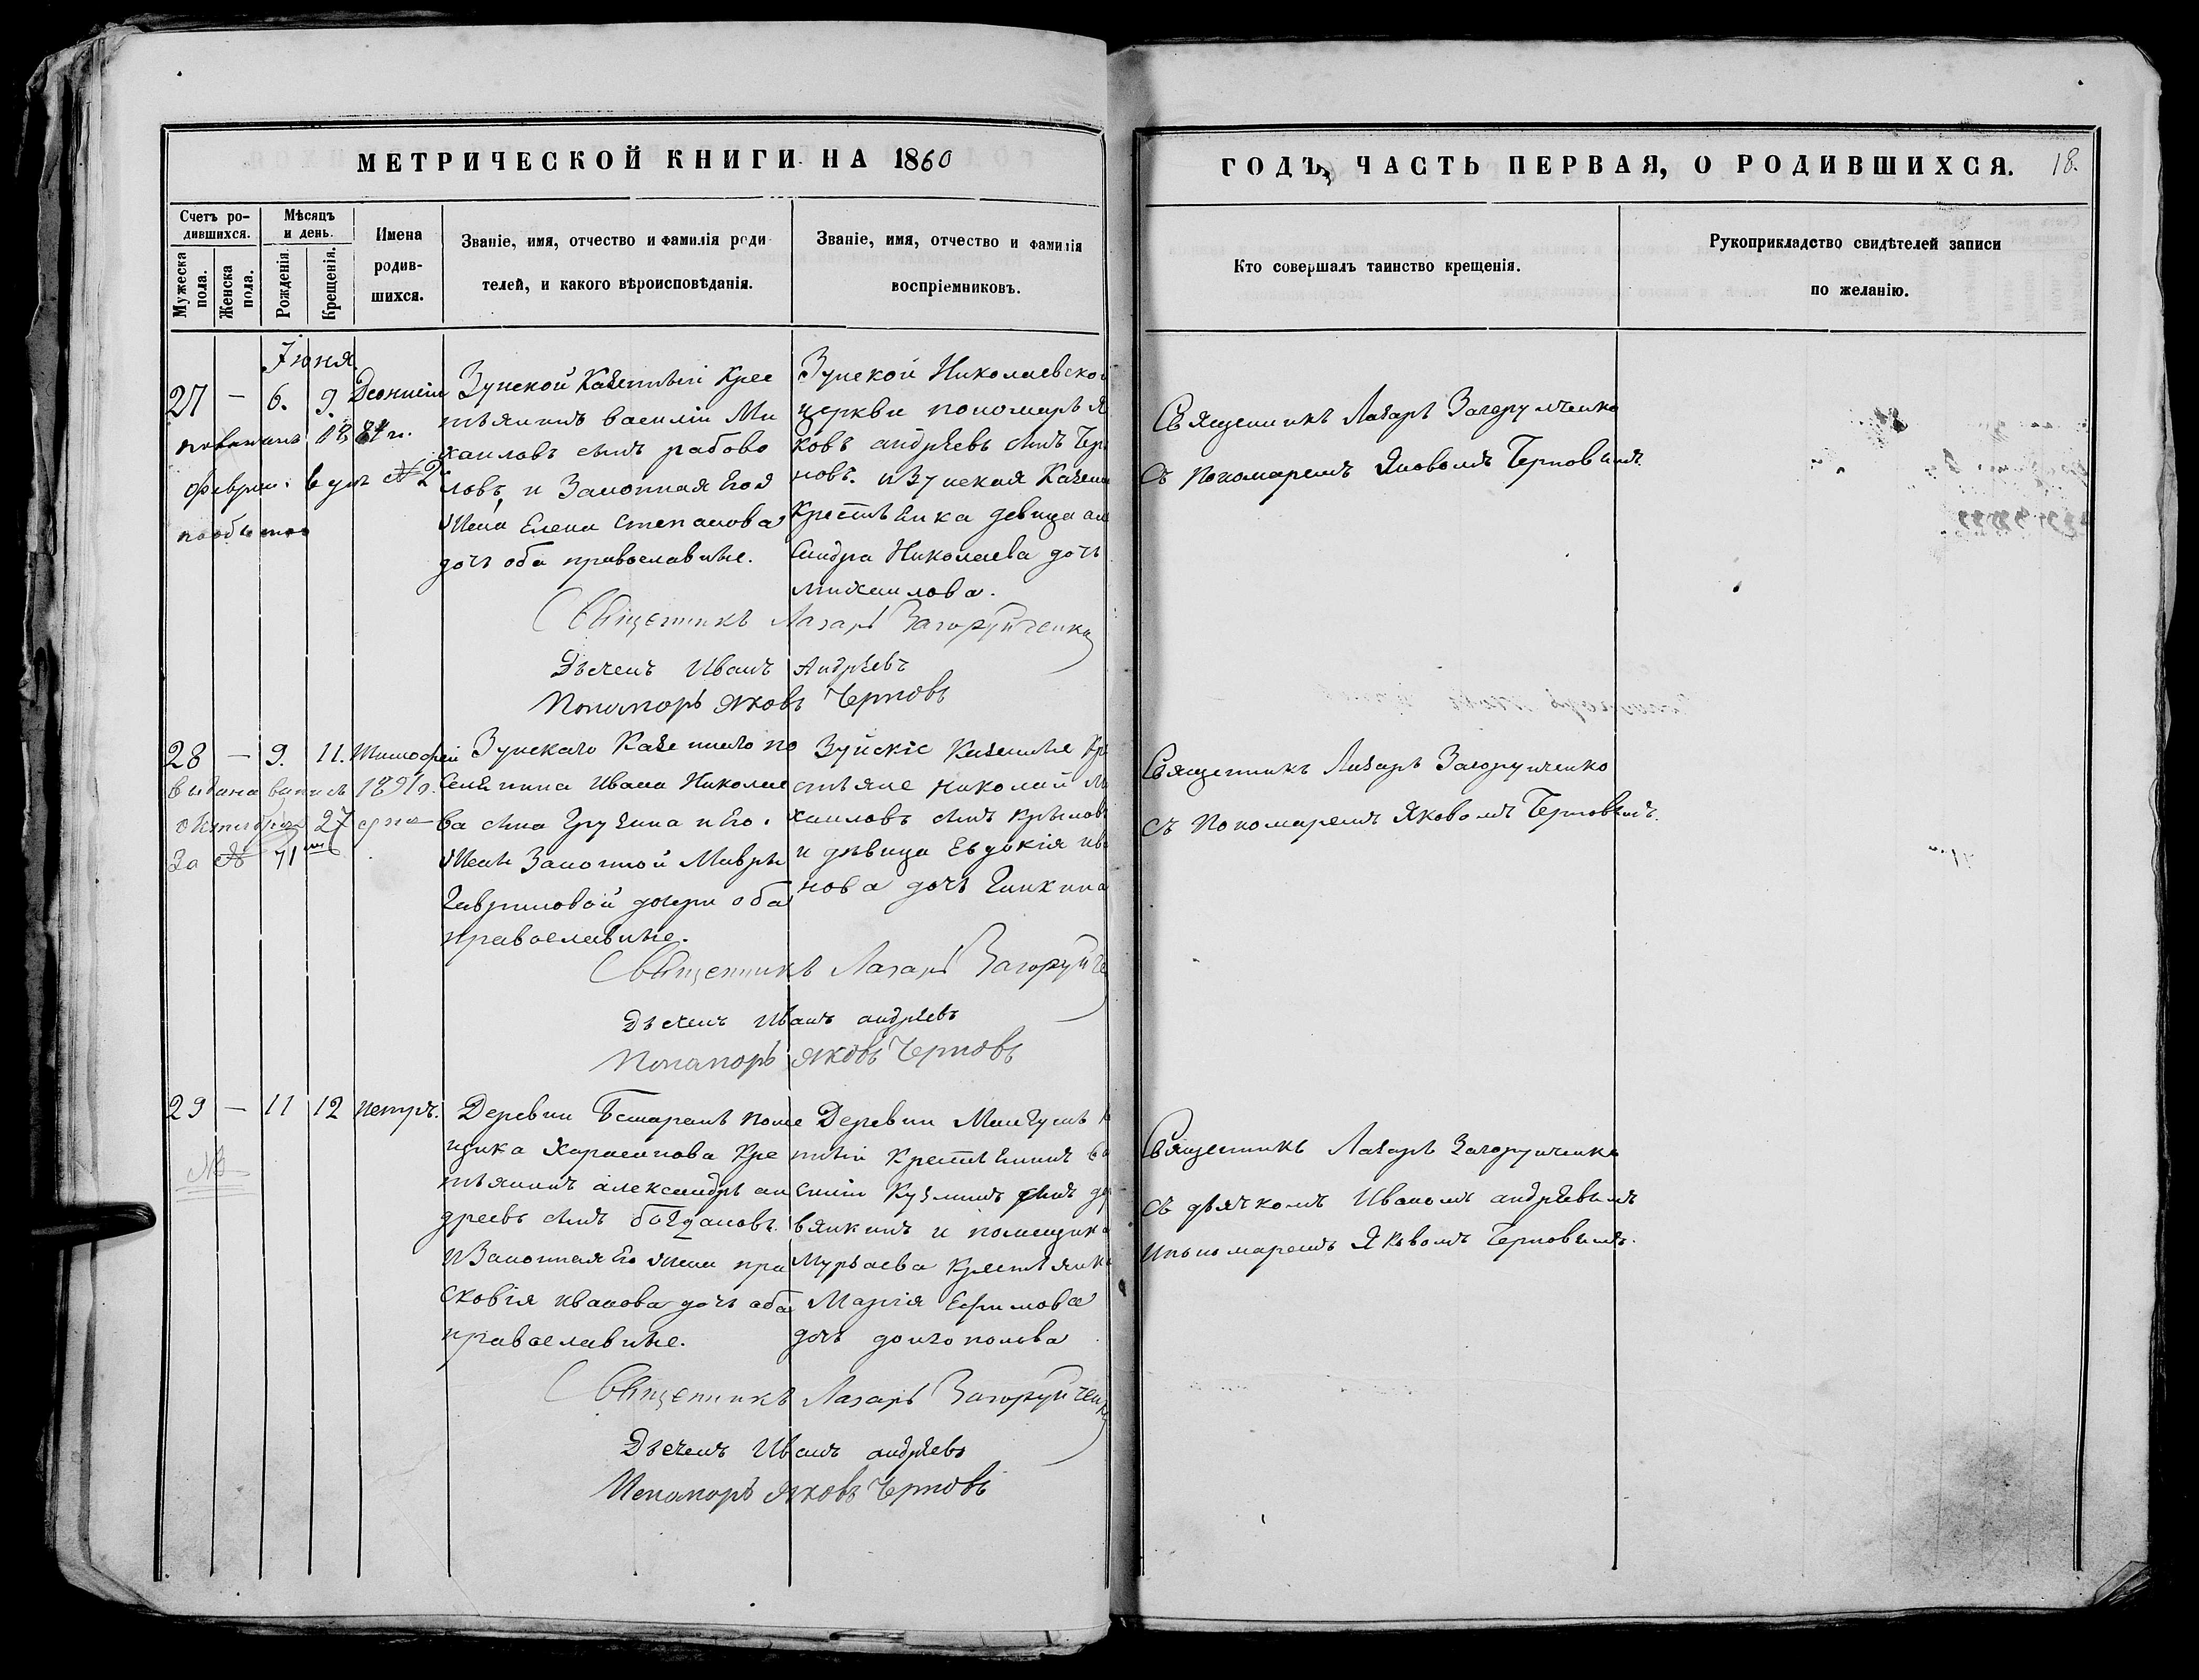 МЕТРИЧЕСКОЙ КНИГИ НА 1860
Счетъ ро-
дившихся.
Мужеска пола.
Женска пола.
Мѣсяцъ
и день.
Рожденія.
Крещенія.
Имена
родив-
шихся.
Званіе, имя, отчество и фамилія роди
телей, и какого вѣроисповѣданія.
Званіе, имя, отчество и фамилія
воспріемниковъ.
Іюня
27 — 6. 9. Дионисій
Зуйской Казенный Крес
тьянинъ Василій Ми
хаиловъ сынъ
ловъ, и Законная Его
Жена Елена Степанова
дочь оба православные.
Зуйской Николаевской
церкви пономарь Я
ковъ андрѣевъ сынъ Чер
новъ. и Зуйская Казен
Крестьянка девица
Николаева дочь
михаилова.
Священникъ Лазарь Загоруйченко
Дьячекъ Иванъ Андрѣевъ
Пономарь Яковъ Черновъ
28 — 9. 11. Тимофей
выдана выпись 1891 г.
октября 27 дня
За № 71
Зуйскаго Казеннаго по
селянина Ивана Николае
ва сына и Его
Жены Законной Мавры
Гавриловой дочери оба
православные.
Зуйскіе Казенные Кре
стьяне Николай Ми
хаиловъ сынъ Крыловъ
и дѣвица Евдокія ива
нова дочь
Священникъ Лазарь Загоруйче
Дьячекъ Иванъ андрѣевъ
Пономарь Яковъ Черновъ
29 — 11 12 петръ.
№
Деревни Бешарань поме
щика Кре
тьянинъ александръ ан
дреевъ сынъ богдановъ.
и Законная Его Жена пра
сковія иванова дочь оба
православные.
Деревни Мангушъ
Крестьянинъ
Кузминъ сынъ
и помещика
Крестьянка
Марія Ефимова
дочь долгополова
Священникъ Лазарь Загоруйченк
Дьячекъ Иванъ андрѣевъ
Пономарь Яковъ Черновъ
ГОДЪ, ЧАСТЬ ПЕРВАЯ, О РОДИВШИХСЯ. 18.
Кто совершалъ таинство крещенія.
Рукоприкладство свидѣтелей записи
по желанію.
Священникъ Лазарь Загоруйченко
съ Пономаремъ Яковомъ Черновымъ.
Священникъ Лазарь Загоруйченко
съ Пономаремъ Яковомъ Черновымъ.
Священникъ Лазарь Загоруйченко
съ дьячкомъ Иваномъ андрѣевымъ
и пономаремъ Яковомъ Черновымъ.